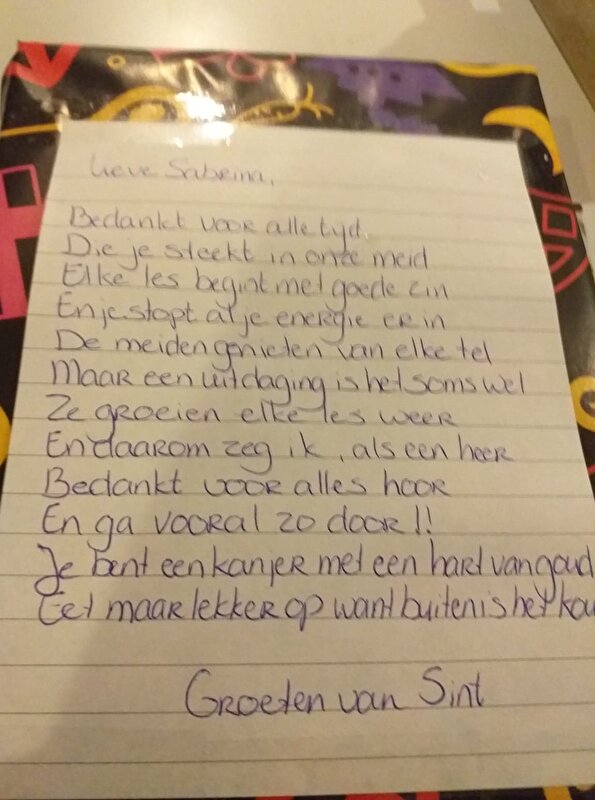 Lieve Sabrina,
Bedankt voor alle tijd.
Die je steekt in onze meid
Elke les begint met goede zin
En je stopt al je energie er in
De meiden genieten van elke tel
Maar een uitdaging is het soms wel
Ze groeien elke les weer
En daarom zeg ik, als een heer
Bedankt voor alles hoor
En ga vooral zo door!!
Je bent een kanjer met een hart van goud
Eet maar lekker op want buiten is het kou
Groeten van Sint